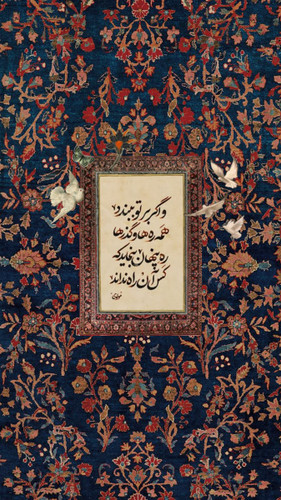 واگر بر تو ببندد
همه ره‌ها و گذرها
ره پنهان بنماید که
کس آن راه نداند
مولوی